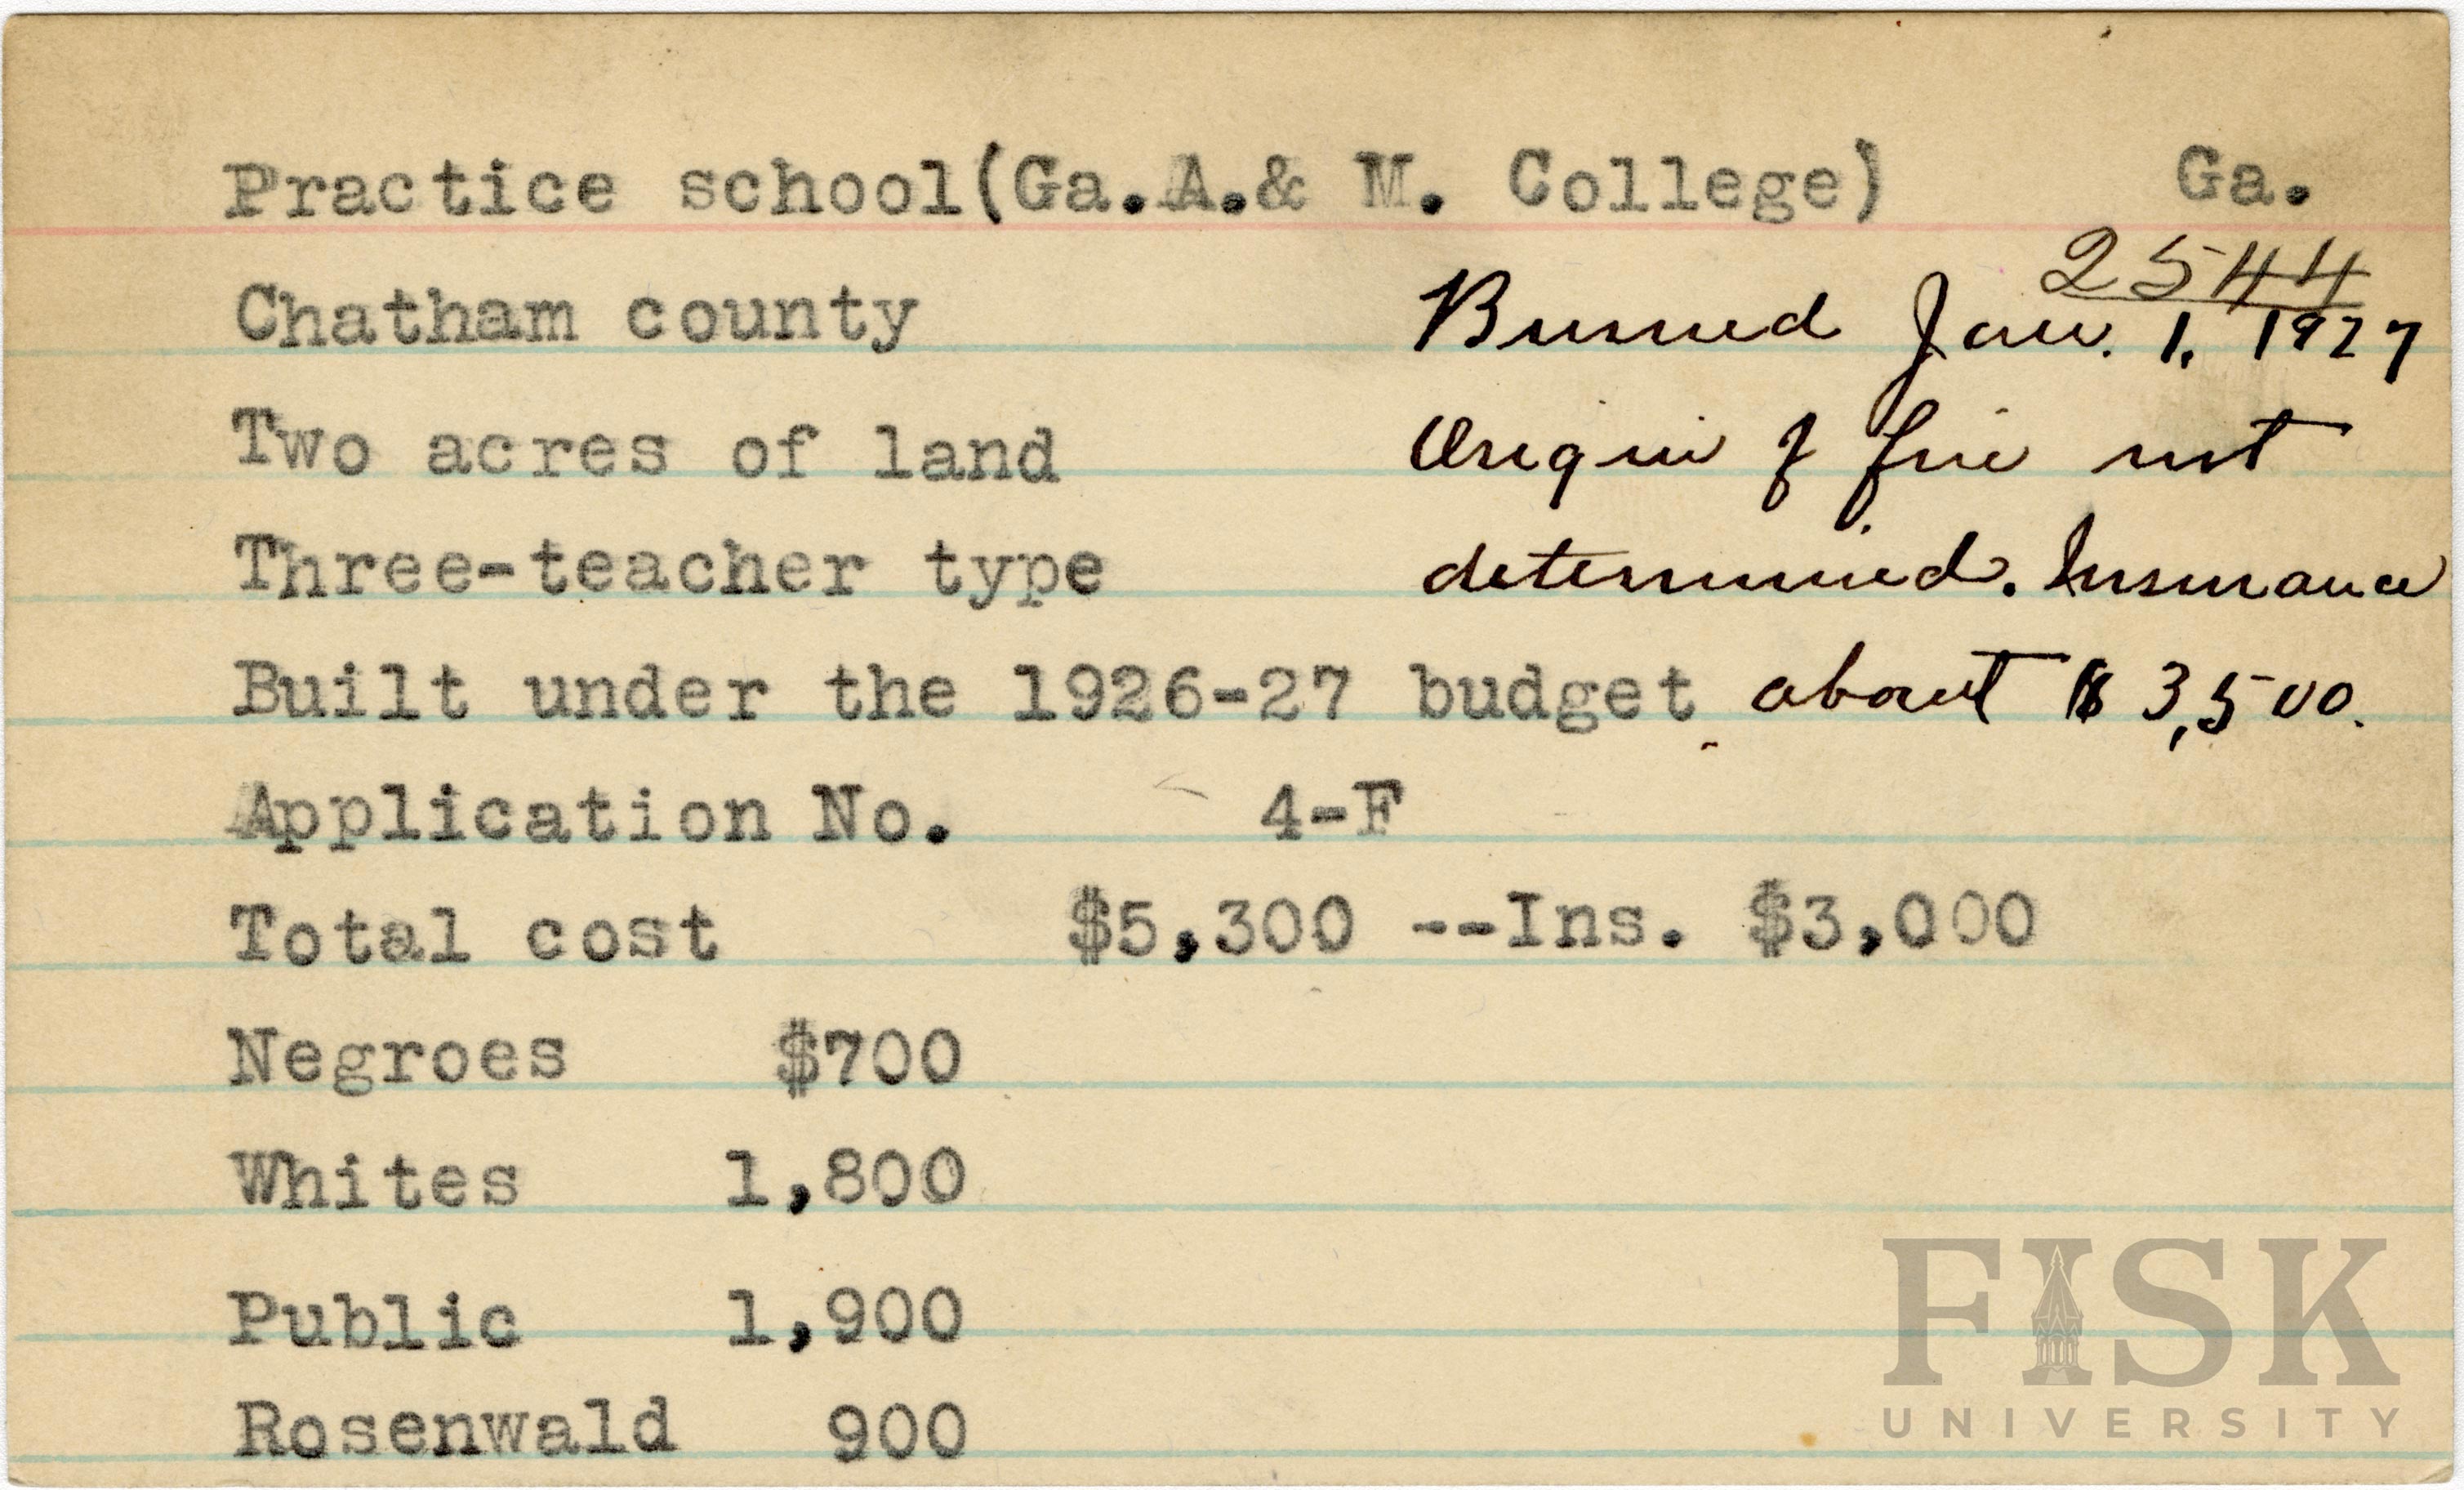 Practice school(Ga.A.& M. College) Ga.
2544
Chatham county Burned Jan. 1, 1927
Two acres of land Origin of fire not
Three-teacher type determined. Insurance
Built under the 1926-27 budget about $3,500.
Application No. 4-F
Total cost $5,300 --Ins. $3,000
Negroes $700
Whites 1,800
Public 1,900
Rosenwald 900
FISK
UNIVERSITY